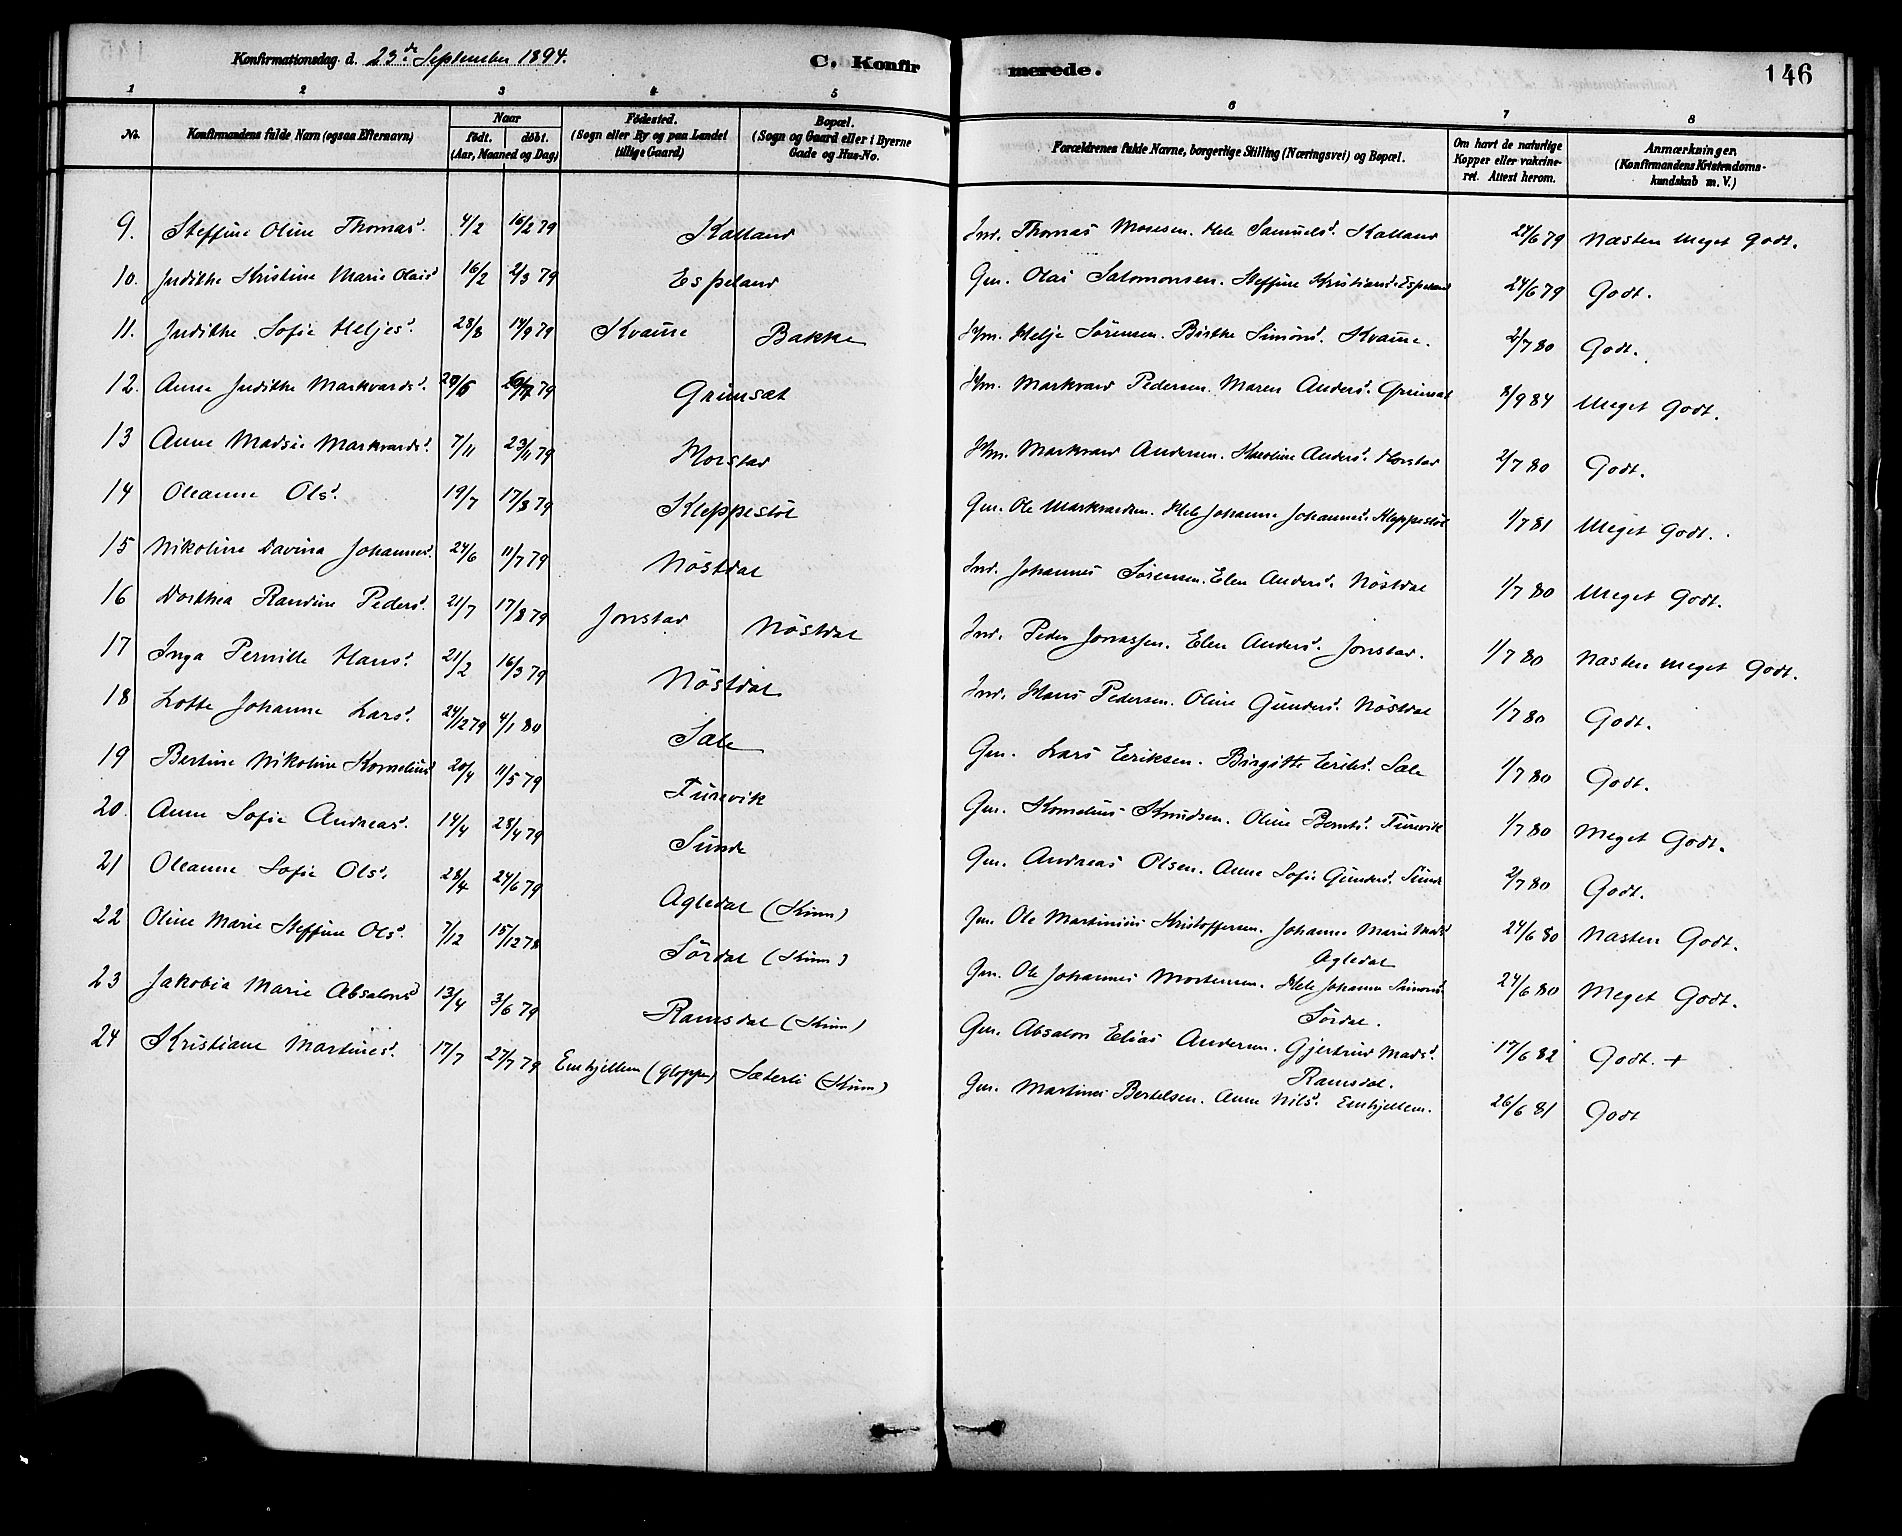 Konfirmationsdag d. 23de September 1894.
C. Konfirmerede.
146
1 2 3 4 5 6 7 8
No. Konfirmandens fulde Navn (ogsaa Efternavn) Naar født. døbt. (Aar, Maaned og Dag) Fødested. (Sogn eller By og paa Landet tillige Gaard) Bopæl. (Sogn og Gaard eller i Byerne Gade og Hus-No. Forældrenes fulde Navne, borgerlige Stilling (Næringsvei) og Bopæl. Om havt de naturlige Kopper eller vakcineret. Attest herom. Anmærkninger. (Konfirmandens Kristendomskundskab m. V.)
9. Steffine Oline Thomasd. 4/2 16/2 79 Kalland Ind. Thomas Mosesen. Mele Samuelsd. Kalland 24/6 79 Næsten Meget Godt.
10. Judithe Kristine Marie Olaisd 16/2 2/3 79 Espeland Gm. Olai Salomonsen. Steffine Kristiansd. Espeland 24/6 79 Godt.
11. Judithe Sofie Heljesd. 28/8 14/9 79 Kvame Bakke Hm. Helje Sørensen. Birthe Simonsd. Kvame. 2/7 80 Godt.
12. Anne Judithe Markvardsd. 29/6 79 Grimset Hm. Markvard Pedersen. Maren Andersd. Grimset 8/9 84 Meget Godt.
13 Anne Madsie Markvardsd. 7/11 23/11 79 Horstad Hm. Markvard Andersen. Karoline Andersd. Horstad 2/7 80 Godt.
14 Oleanne Olsd. 19/7 17/8 79 Kleppestøl Gm. Ole Markvardsen. Mele Johanne Johannesd. Kleppestøl 1/7 81 Meget Godt.
15 Nikoline Davina Johannesd. 24/6 11/7 79 Nöstdal Ind. Johannes Sørensen. Elen Andersd. Nöstdal 1/7 80 Meget Godt.
16 Dorthea Randine Pedersd. 21/7 17/8 79 Jonstad Nöstdal Ind. Peder Jonassen. Elen Andersd. Jonstad. 1/7 80 Næsten Meget Godt.
17 Inga Pernille Hansd. 21/2 16/3 79 Nöstdal Ind. Hans Pedersen. Oline Gundersd. Nöstdal 1/7 80 Godt.
18 Lotte Johanne Larsd. 24/12 79 4/1 80 Sæle Gm. Lars Eriksen. Birgitte Eriksd. Sæle 1/7 80 Godt.
19 Bertine Nikoline Korneliusd 20/4 11/5 79 Turevik Gm. Kornelius Knudsen. Oline Berntsd. Turevik 1/7 80 Meget Godt.
20. Anne Sofie Andreasd. 14/4 28/4 79 Sunde Gm. Andreas Olsen. Anne Sofie Gundersd. Sunde 2/7 80 Godt.
21 Oleanne Sofie Olsd. 28/4 24/6 79 Agledal (Kinn) Gm. Ole Martinius Kristoffersen. Johanne Marie Madsd Agledal 24/6 80 Næsten Godt.
22 Oline Marie Steffine Olsd. 7/12 15/12 78 Sördal (Kinn) Gm. Ole Johannes Mortensen. Mele Johanne Simonsd. Sördal. 24/6 80 Meget Godt.
23 Jakobia Marie Absalonsd 13/4 3/6 79 Ramsdal (Kinn) Gm. Absalon Elias Andersen. Gjertrud Madsd. Ramsdal. 17/6 82 Godt. +
24 Kristiane Martinesd. 17/7 27/7 79 Emhjellem (Gloppen) Sæterli (Kinn) Gm. Martines Bertelsen. Anne Nilsd. Emhjellem. 26/6 81 Godt